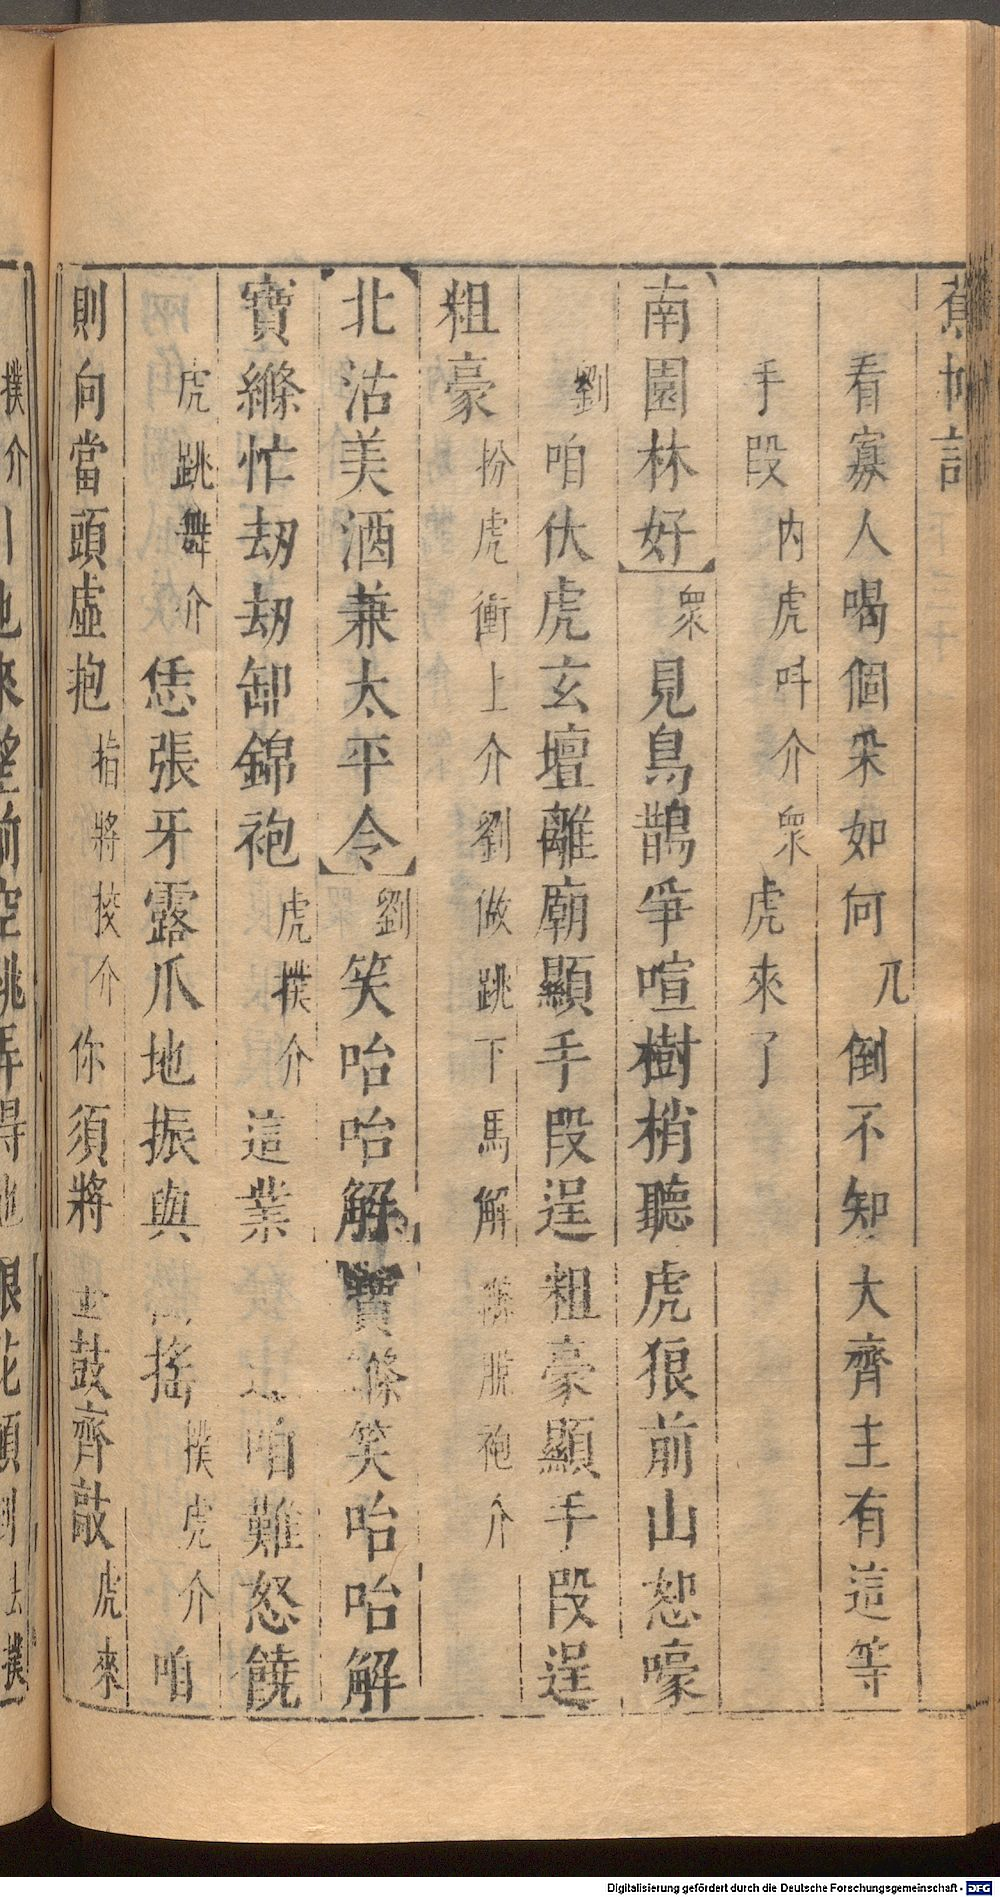 看寡人喝個采如何 丑 倒不知大齊主有這等
手段 內虎呌介 眾 虎來了
南園林好 眾 見鳥鵲爭喧樹梢聽虎狼前山恕嚎
劉 咱伏虎玄壇離廟顯手段逞粗豪顯手段逞
粗豪 扮虎衝上介劉做跳下馬解 脫袍介
北沽美酒兼太平令 劉 笑咍咍解寶縧笑咍咍解
寶縧忙刼刼卸錦袍 虎撲介 這業 咱難怒饒
虎跳舞介 恁張牙露爪地振與 搖 撲虎介 咱
則向當頭虛抱 指將校介 你須將 鼓齊敲 虎來
Digitalisierung gefördert durch die Deutsche Forschungsgemeinschaft - DFG